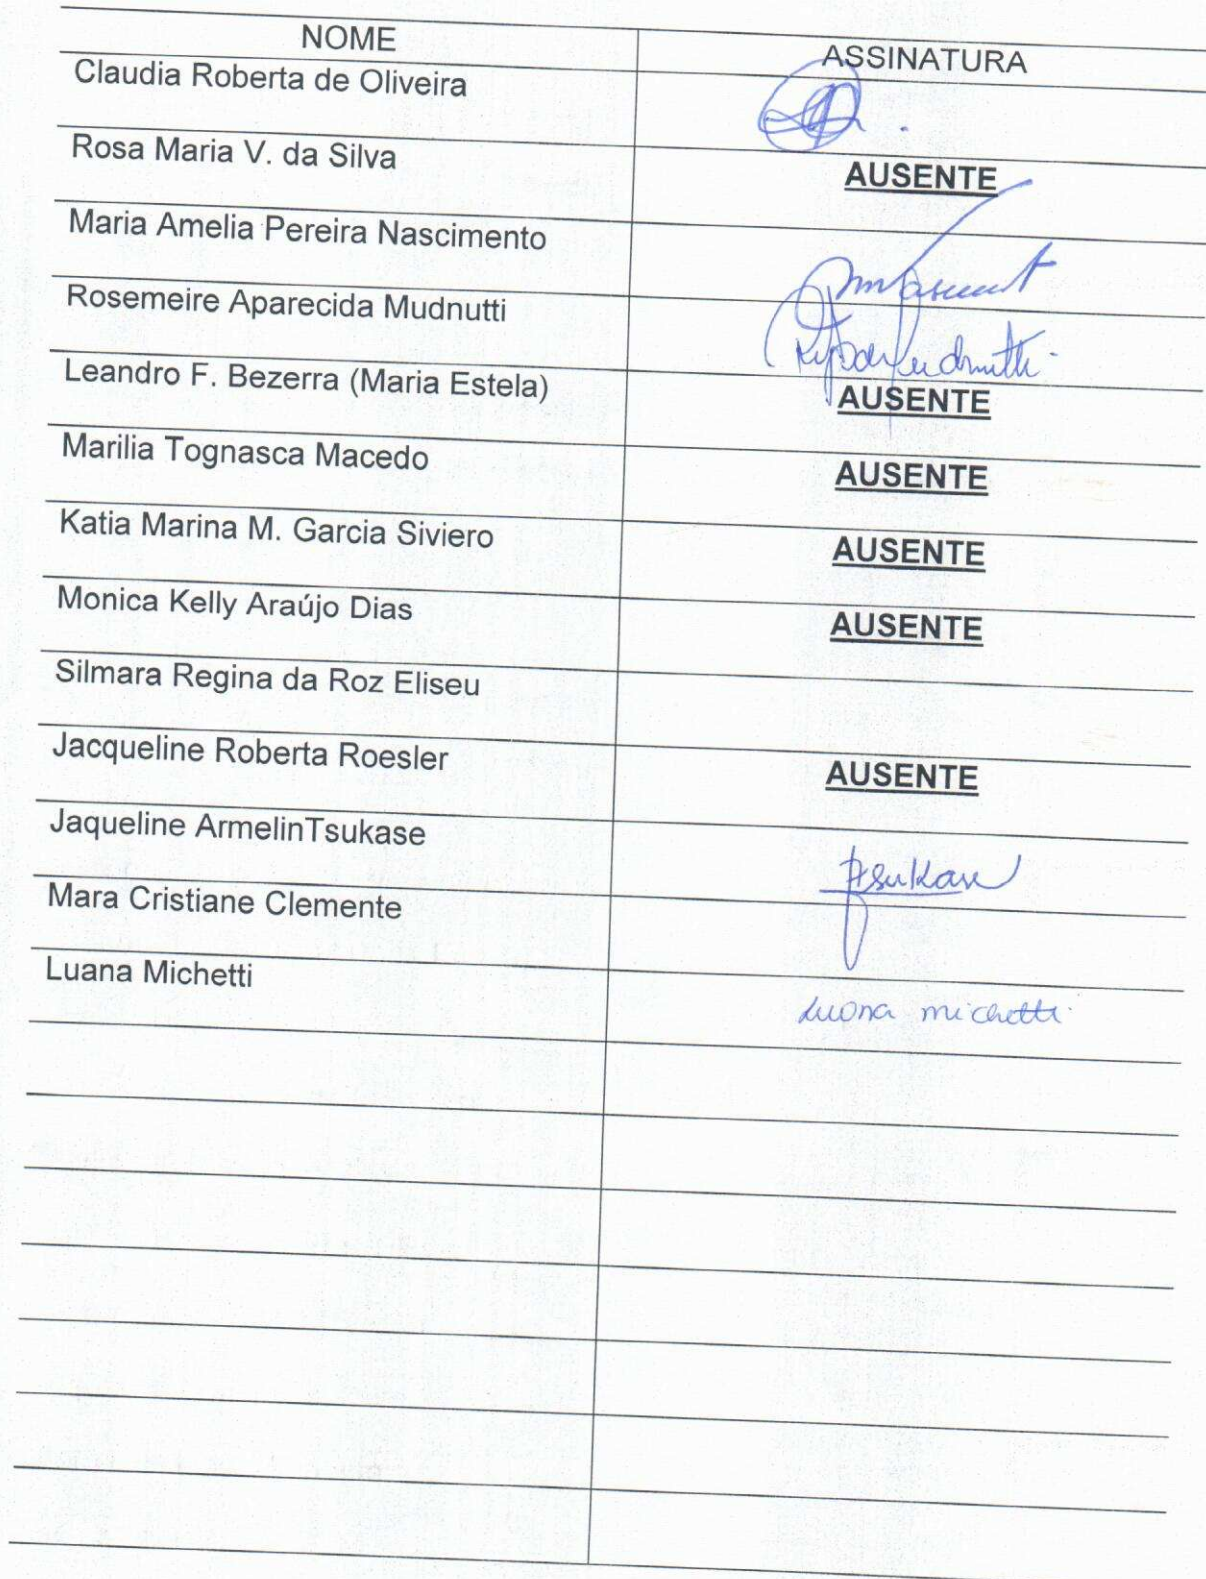 NOME ASSINATURA
Claudia Roberta de Oliveira
Rosa Maria V. da Silva AUSENTE
Maria Amelia Pereira Nascimento
Rosemeire Aparecida Mudnutti
Leandro F. Bezerra (Maria Estela) AUSENTE
Marilia Tognasca Macedo AUSENTE
Katia Marina M. Garcia Siviero AUSENTE
Monica Kelly Araújo Dias AUSENTE
Silmara Regina da Roz Eliseu
Jacqueline Roberta Roesler AUSENTE
Jaqueline ArmelinTsukase
Mara Cristiane Clemente
Luana Michetti Luana michetti